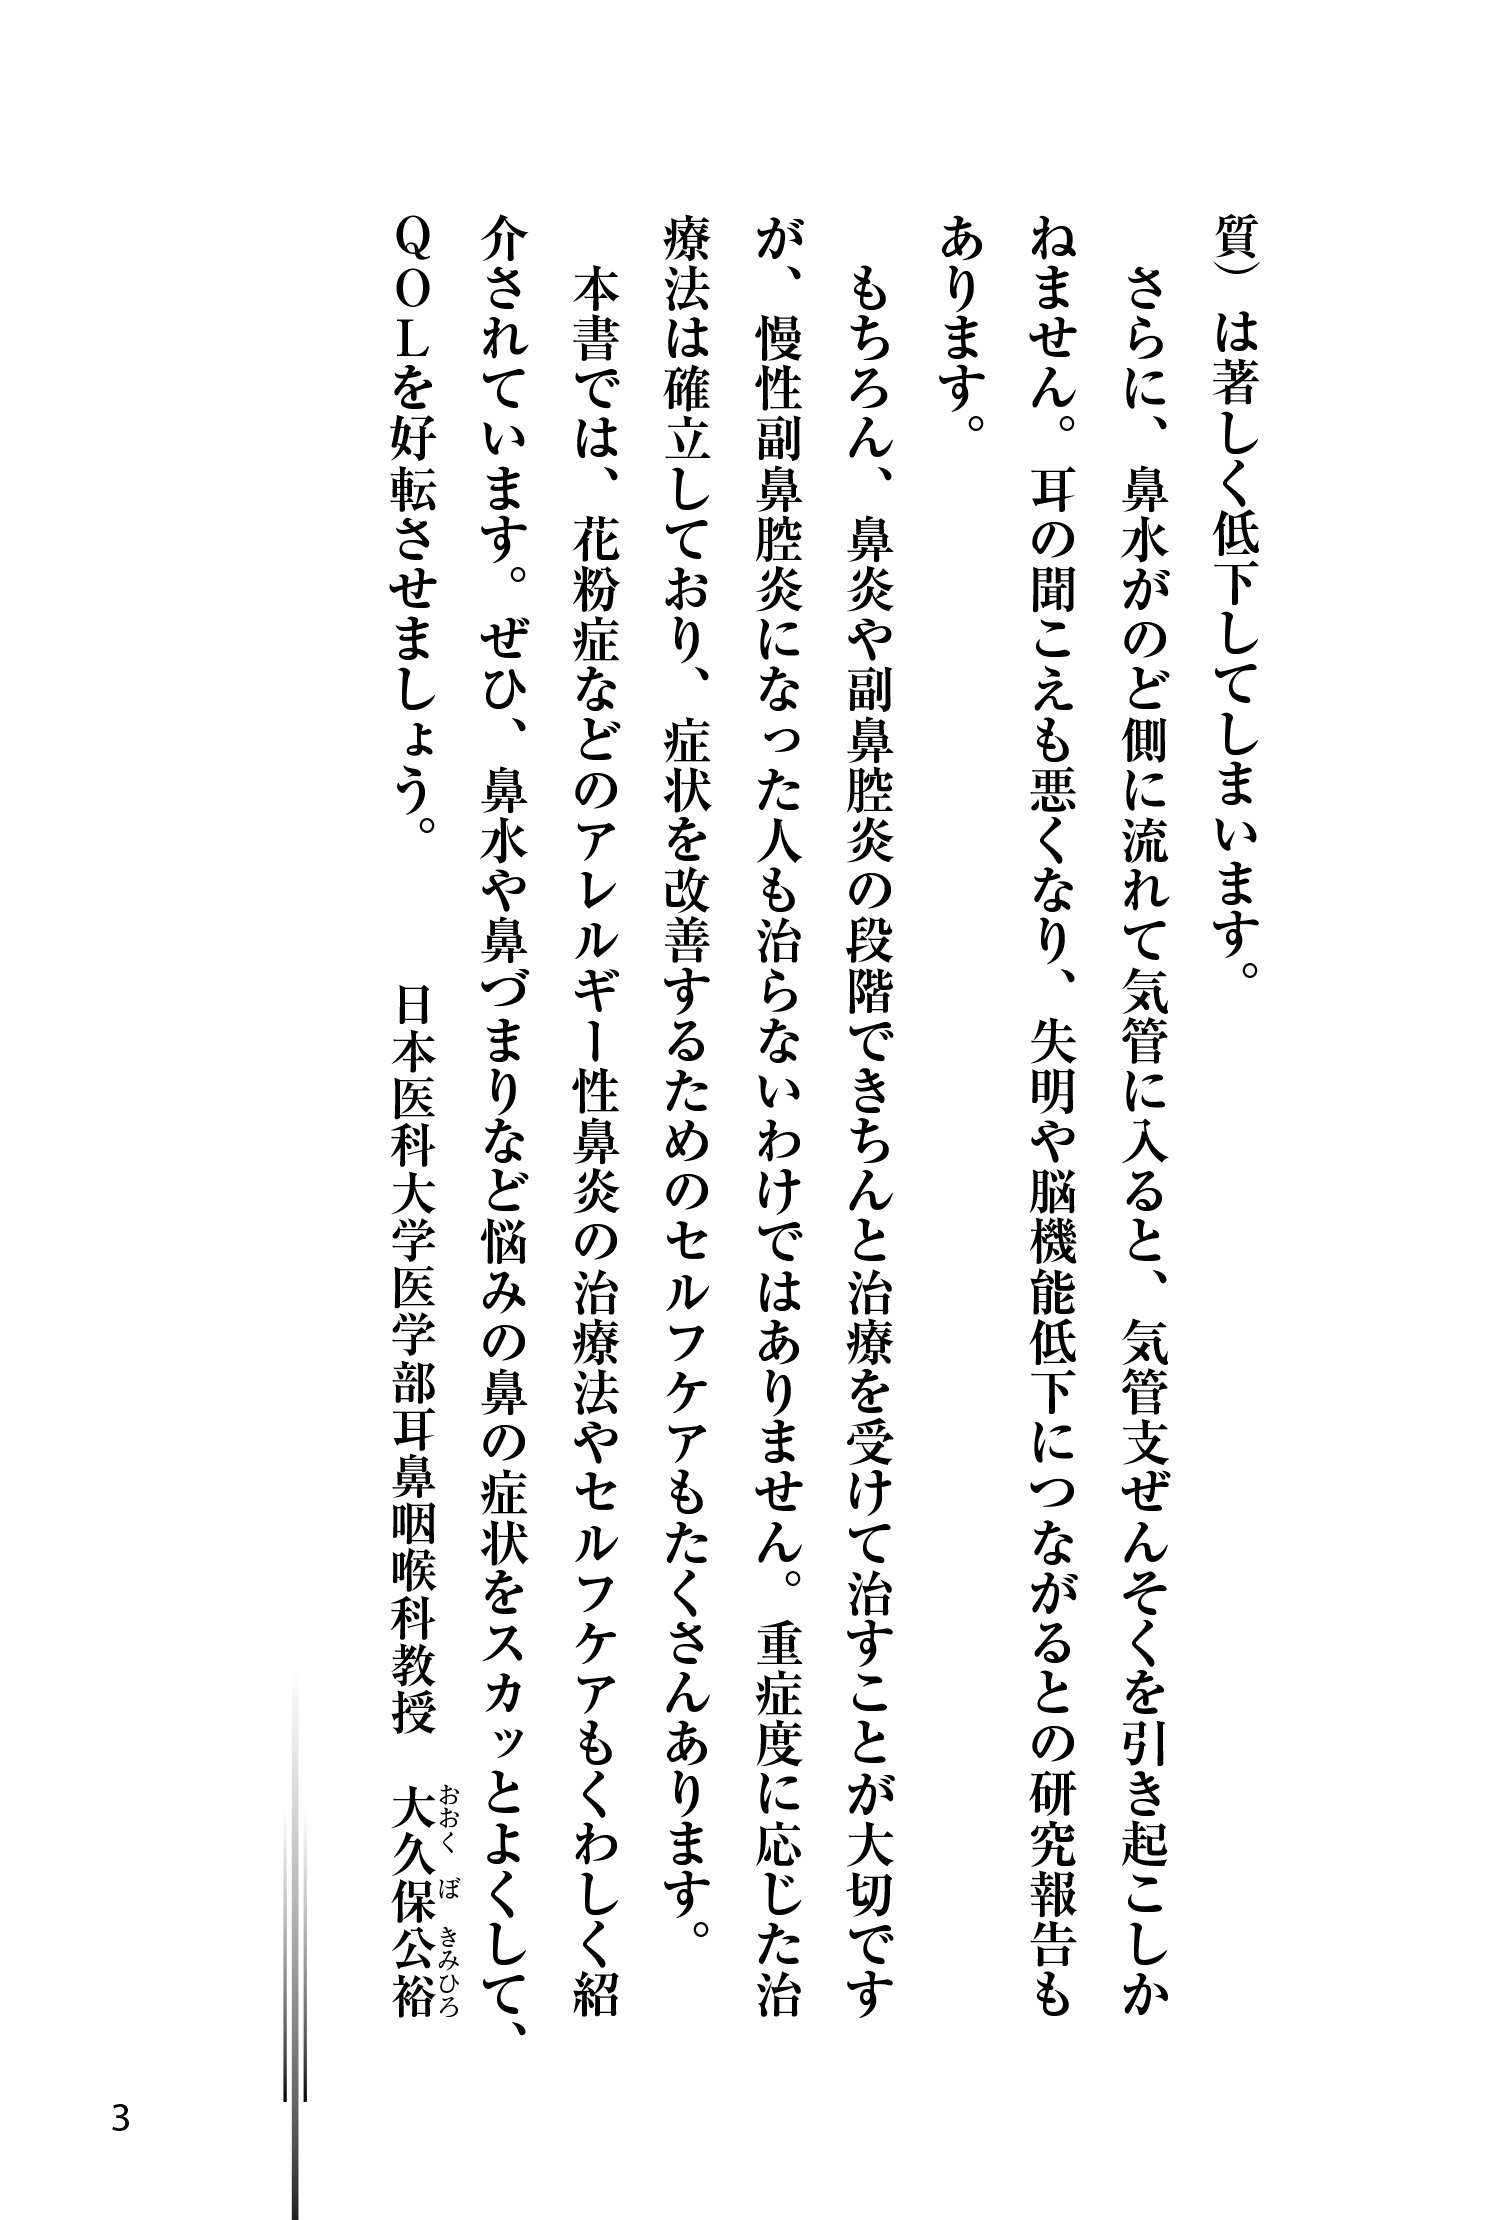 質）は著しく低下してしまいます。
　さらに、鼻水がのど側に流れて気管に入ると、気管支ぜんそくを引き起こしか
ねません。耳の聞こえも悪くなり、失明や脳機能低下につながるとの研究報告も
あります。
　もちろん、鼻炎や副鼻腔炎の段階できちんと治療を受けて治すことが大切です
が、慢性副鼻腔炎になった人も治らないわけではありません。重症度に応じた治
療法は確立しており、症状を改善するためのセルフケアもたくさんあります。
　本書では、花粉症などのアレルギー性鼻炎の治療法やセルフケアもくわしく紹
介されています。ぜひ、鼻水や鼻づまりなど悩みの鼻の症状をスカッとよくして、
ＱＯＬを好転させましょう。
日本医科大学医学部耳鼻咽喉科教授　大久保公裕
おおくぼきみひろ
3